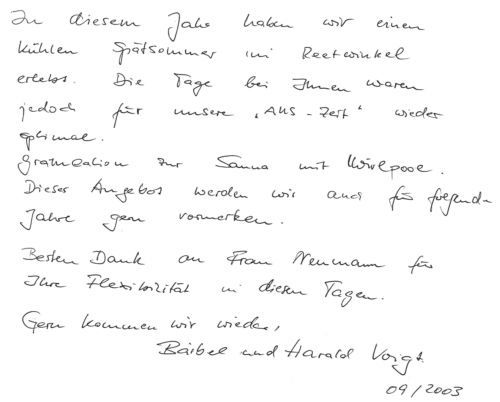 In diesem Jahr haben wir einen
kühlen Spätsommer im Reetwinkel
erlebt. Die Tage bei Ihnen waren
jedoch für unsere „AUS-Zeit" wieder
optimal.
Gratulation zur Sauna mit Wirlpool.
Dieses Angebot werden wir auch für folgende
Jahre gern vormerken.
Besten Dank an Frau Neumann für
Ihre Flexibilität in diesen Tagen.
Gern kommen wir wieder,
Bärbel und Harald Voigt
09/2003